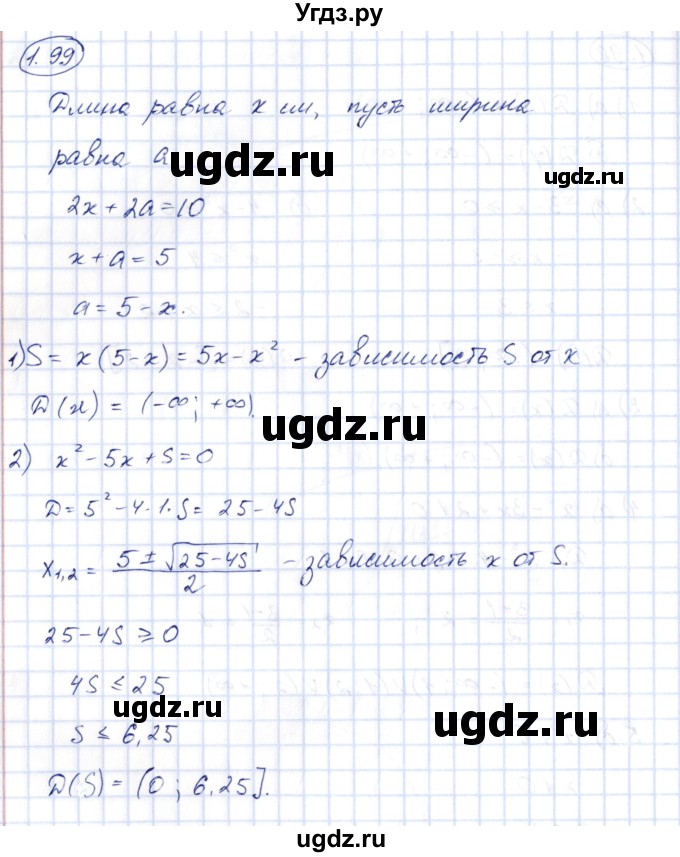 Угдз.ру
1.99
Длина равна x см, пусть ширина
равна a
ugdz.ru
ugdz.ru
2x + 2a = 10
x + a = 5
a = 5 - x.
1) S = x(5-x) = 5x - x² - зависимость S от x
D(x) = (-∞; +∞).
ugdz.ru
ugdz.ru
2) x² - 5x + S = 0
D = 5² - 4·1·S = 25 - 4S
x₁,₂ = (5 ± √(25-4S))/2 - зависимость x от S.
25 - 4S ≥ 0
4S ≤ 25
ugdz.ru
ugdz.ru
S ≤ 6,25
D(S) = (0; 6,25].
ugdz.ru